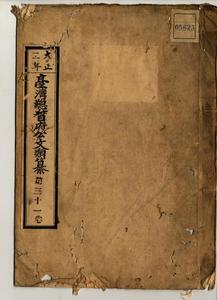 05623
大正
二年
臺灣總督府公文類纂 第三十一卷